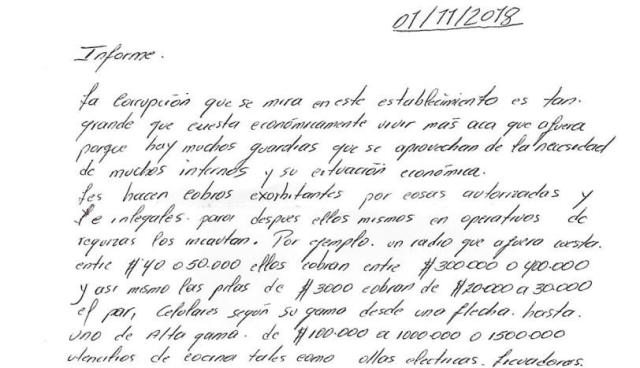 01/11/2018
Informe.
La Corrupción que se mira en este establecimiento es tan
grande que cuesta económicamente vivir más aca que afuera
porque hay muchos guardias que se aprovechan de la necesidad
de muchos internos y su situación económica.
Les hacen cobros exorbitantes por cosas autorizadas y
e ilegales. para despues ellos mismos en operativos de
requizas los incautan. Por ejemplo. un radio que afuera cuesta.
entre $40 o 50.000 ellos cobran entre $300.000 o 400.000
y asi mismo las pilas de $3000 cobran de $20.000 a 30.000
el par, Celulares según su gama desde una flecha. hasta.
uno de Alta gama. de $100.000 a 1000.000 o 1500.000
utencilios de cocina tales como ollas electricas. licuadoras.